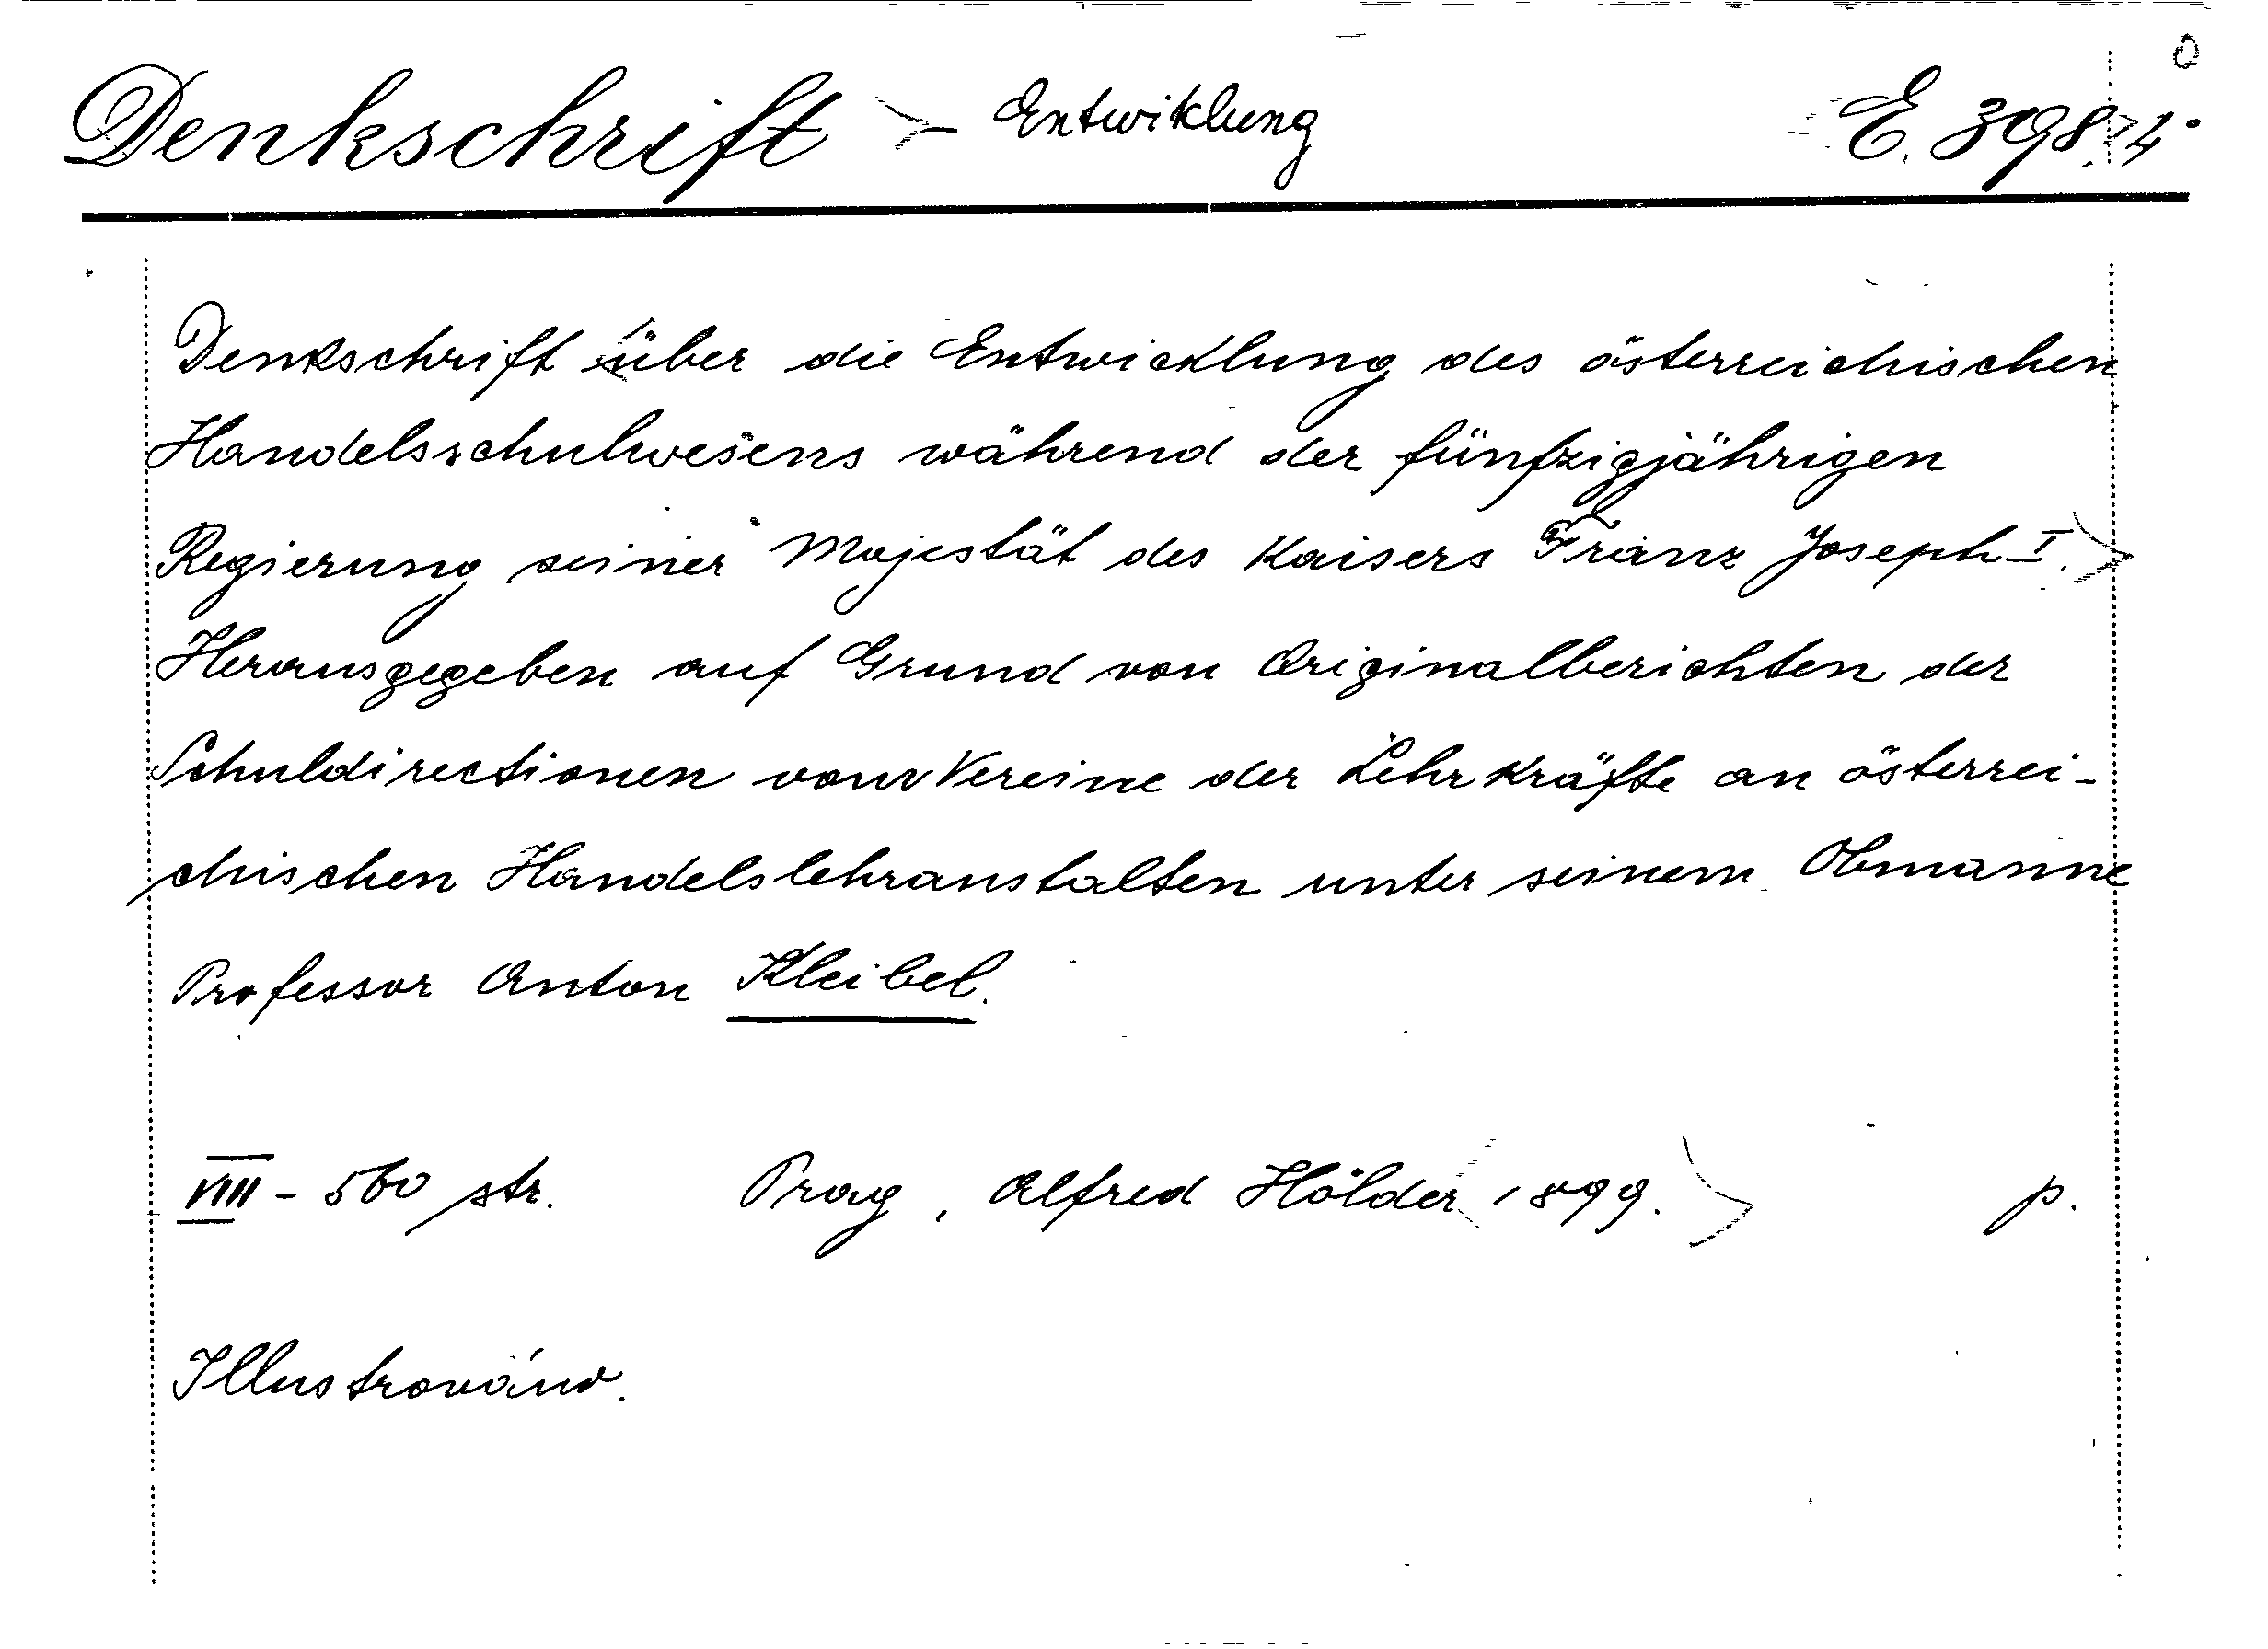 Denkschrift - Entwiklung E. 398. 4°
Denkschrift über die Entwicklung des österreichischen
Handelsschulwesens während der fünfzigjährigen
Regierung seiner Majestät des Kaisers Franz Joseph I.
Herausgegeben auf Grund von Originalberichten der
Schuldirectionen vom Vereine der Lehrkräfte an österrei-
chischen Handelslehranstalten unter seinem Obmanne
Professor Anton Kleibel.
VIII - 560 str. Prag, Alfred Hölder 1899. p.
Illustrováno.